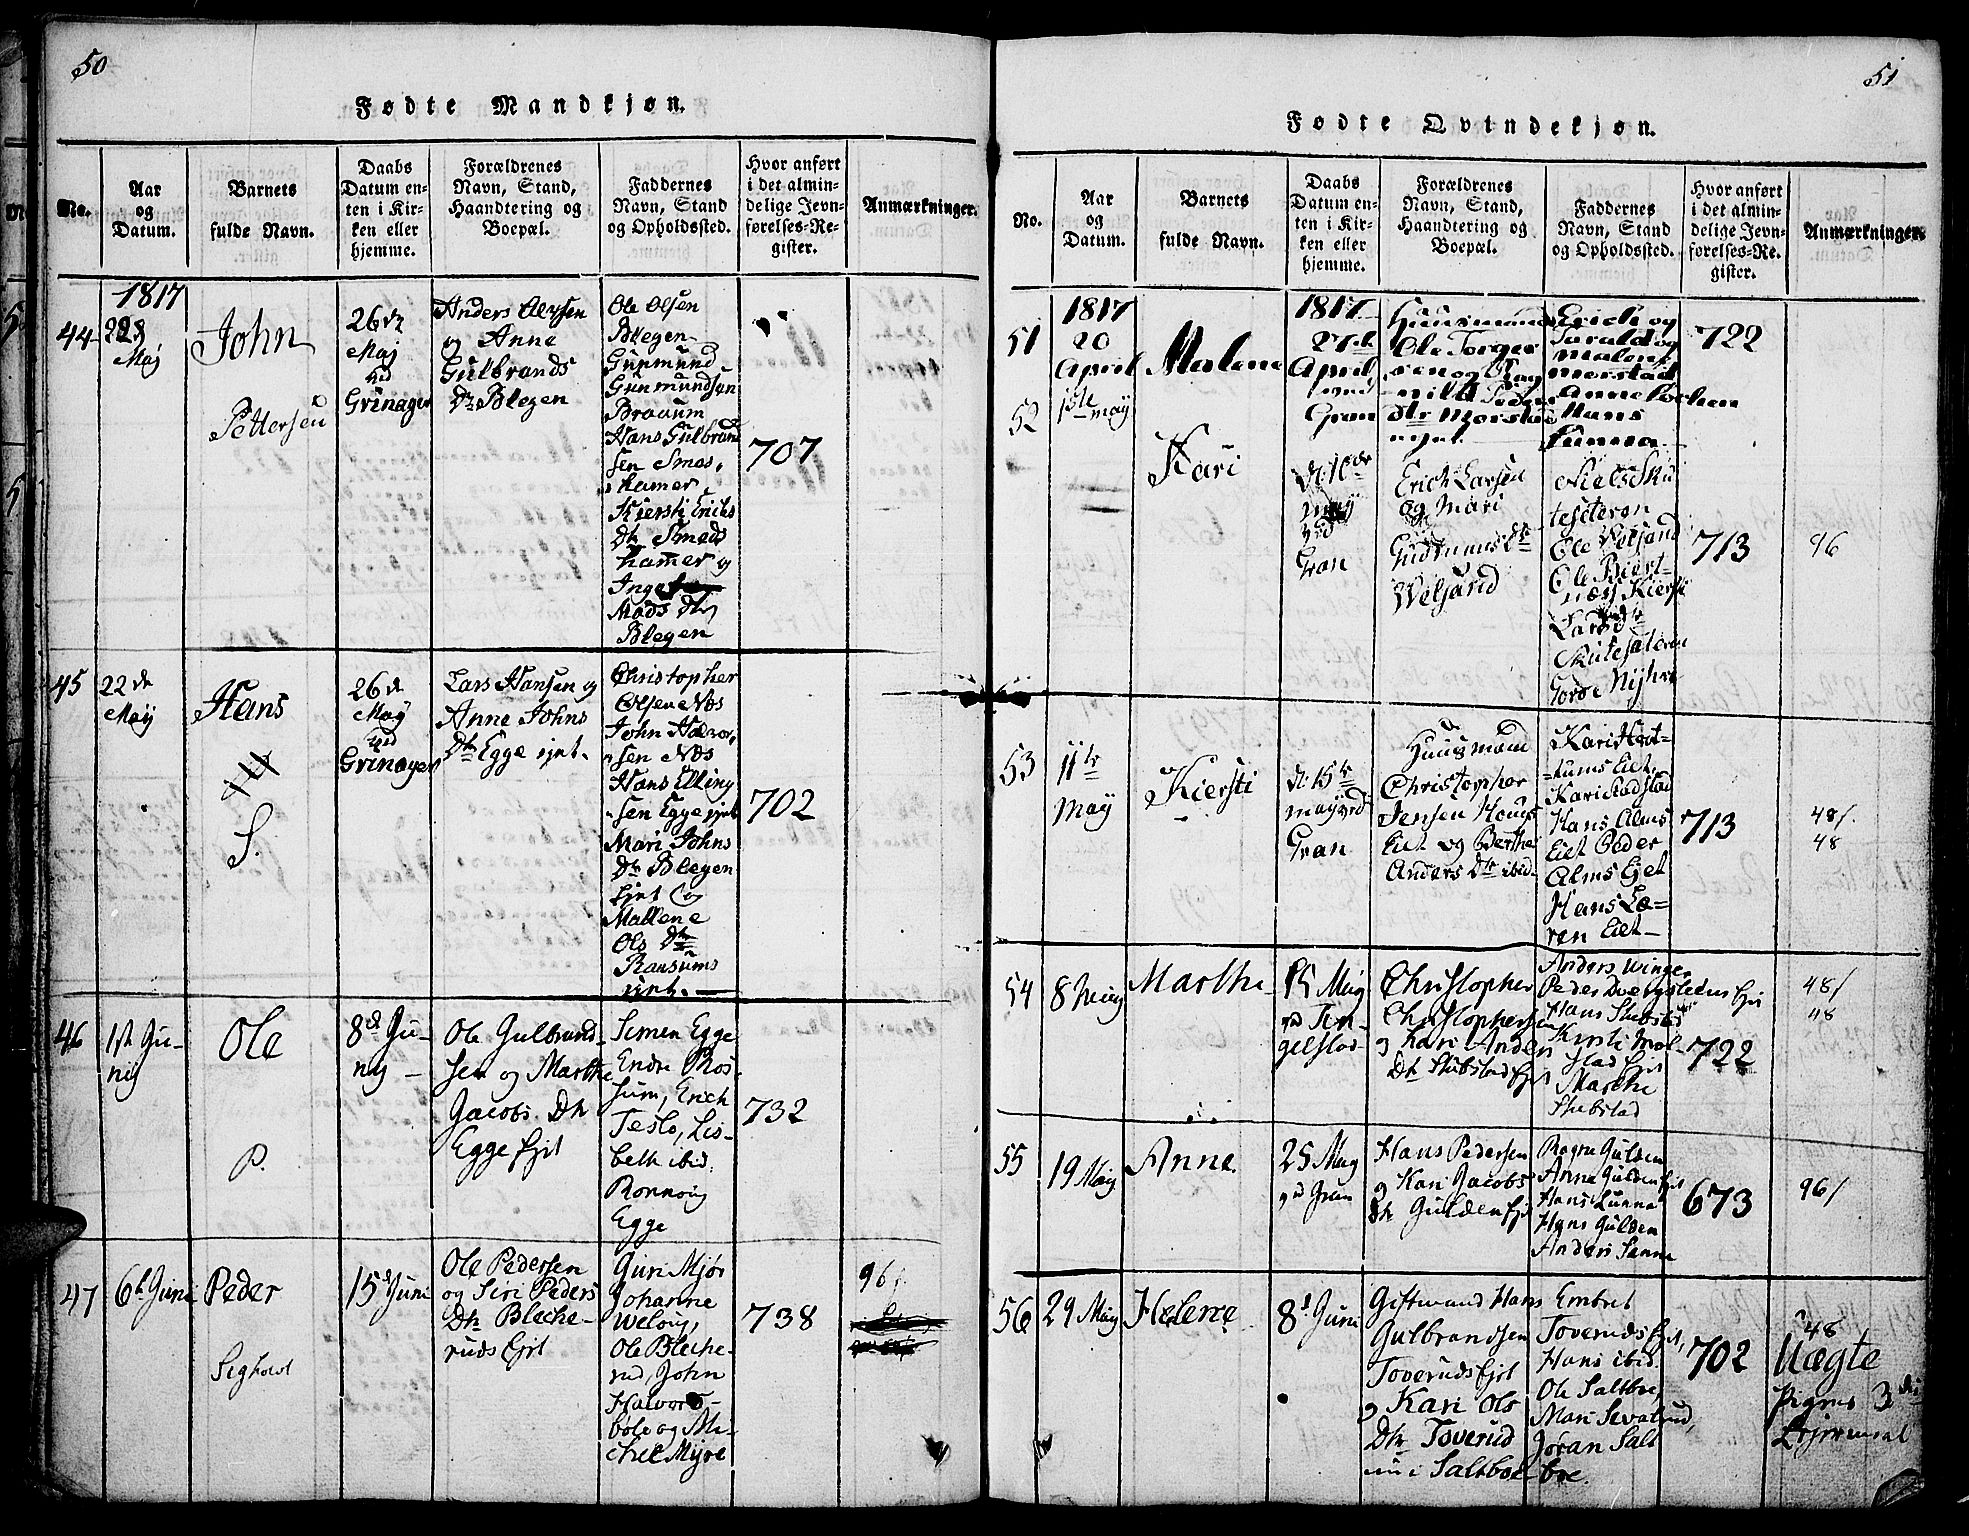 50
Fødte Mandkjøn.
No.
Aar
og
Datum.
Barnets
fulde Navn.
Daabs
Datum en-
ten i Kir-
ken eller
hjemme.
Forældrenes
Navn, Stand,
Haandtering og
Boepæl.
Faddernes
Navn, Stand
og Opholdssted.
Hvor anført
i det almin-
delige Jevn-
førelses-Re-
gister.
Anmærkninger.
44
1817
22
Maj
John
Pettersen
26
Maj
ved
Grinager
Anders
og Anne
Gulbrands
Dtr Blegen
Ole Olsen
Blegen
Gunmund
Gunmundsen
Braaum
Hans Gulbrand
sen Smes,
hamer
Kiersti Erichs
Dtr Smeds
hamer og
Inge
Mads Dtr
Blegen
707
45
22de
Maÿ
Hans
S.
26d
Maÿ
ved
Grinager
Lars Hansen og
Anne Johns
Dtr Egge ejnt.
Christopher
Olsen Næs
John Halvor,
sen Næs
Hans Elling
sen Egge ejnt
Mari Johns
Dtr Blegen
Ejnt og
Mallene
Ols Dtr
Ransums
ejnt.
702
46
1ste Ju-
nÿ
Ole
P.
8de Ju-
nÿ
Ole Gulbrand-
sen og Marthe
Jacobs Dtr
Egge Ejet
Simen Egge
Endre Ros-
sum, Erich
Teslo, Lis-
beth ibid.
Ronnoug
Egge
732
47
6te Juni
Peder
15d Juni
Ole Pedersen
og Siri Peders
Dtr Bleche-
ruds Ejet
Guri Mjør
Johanne
Ole Bleche-
rud, John
Halvors-
bøle og Mi-
chel Mijøe
738
96
51
Fødte Qvindekjøn.
No.
Aar
og
Datum.
Barnets
fulde Navn.
Daabs
Datum en-
ten i Kir-
ken eller
hjemme.
Forældrenes
Navn, Stand,
Haandtering og
Boepæl.
Faddernes
Navn, Stand
og Opholdssted.
Hvor anført
i det almin-
delige Jevn-
førelses-Re-
gister.
Anmærkninger.
51
1817
20
April
Malene
1817
27de
April
ved
Gran
Huusmand
Ole Torger
sen og
Erich og
Malene
Anne
Hans
722
52
1ste maÿ
Kari
maÿ
ved
Gran
Erich Larsen
og Mari
Gudmunds dtr
Welsand
Niels Sku
tesæteren
Ole Welsand
Ole
Kiersti
Lars dtr
Skutesæteren
713
96
53
11te
Maÿ
Kiersti
d: 15de
may ved
Gran
Huusmand
Christopher
Jensen
Eiet og Berthe
Anders Dtr ibid.
Kari
Eiet
Kari
Hans Alms
Eiet Peder
Alms Ejet
Hans Læ-
ren Eiet
713
48/.
48
54
8 Maÿ
Marthe
15 Maÿ
ved Tin-
gelstad
Christopher
Christophersen
og Kari Anders
Dtr Stubstad Ejet
Anders Winger
Peder
Hans Stubstad
Kirsti Mol-
stad Ejet
Marthe
Stubstad
722
48/
48
55
19 Maÿ
Anne
25 Maÿ
ved Gran
Hans Pedersen
og Kari Jacobs
Dtr Gulden Ejet
Ragne Gulden
Anne Gulden Ejet
Hans Lunna
Hans Gulden
Anders Sanne
673
96/
56
29 Maÿ
Helene
8d Juni
Giftmand Hans
Gulbrandsen
Toveruds Ejet
og Kari Ols
Dtr Toverud
nu i Saltboe
Embret
Toveruds Ejet,
Hans ibid.
Ole Saltboe,
Mari Sevalrud,
Jøran Salt
boe.
702
48
Uægte
Pigens 3die
Lejermaal